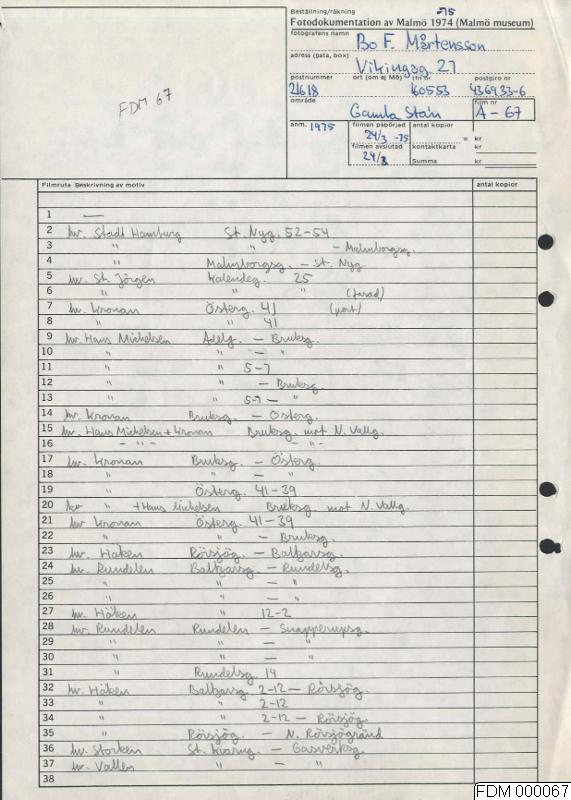 Beställning/räkning -75
Fotodokumentation av Malmö 1974 (Malmö museum)
fotografens namn Bo F. Mårtensson
adress (gata, box) Vikingag. 27
postnummer ort (om ej Mö) tfn nr postgiro nr
21618 160553 436933-6
område Gamla Sta'n film nr A - 67
anm. 1975 filmen påbörjad 24/3 -75 antal kopior = kr
filmen avslutad 24/3 kontaktkarta kr
Summa kr
FDM 67
Filmruta Beskrivning av motiv antal kopior
1 —
2 kv. Stadt Hamburg St. Nyg. 52-54
3 " " - Malmborgsg.
4 " Malmborgsg. - St. Nyg
5 kv. St. Jörgen Kalendeg. 25
6 " " " (fasad)
7 kv. Kronan Österg. 41 (port)
8 " " 41
9 kv. Hans Michelsen Adelg. - Bruksg.
10 " " - "
11 " " 5-7
12 " " - Bruksg.
13 " " 5-7 - "
14 kv. Kronan Bruksg. - Österg.
15 kv. Hans Michelsen + Kronan Bruksg. mot N. Vallg.
16 - " - - " -
17 kv. Kronan Bruksg. - Österg.
18 " " - "
19 " Österg. 41-39
20 kv " + Hans Michelsen Bruksg. mot N. Vallg.
21 kv Kronan Österg. 41-39
22 " " - Bruksg.
23 kv. Håken Rörsjög. - Baltzarsg.
24 kv. Rundelen Baltzarsg. - Rundelsg.
25 " " - "
26 " " - "
27 kv. Håken " 12-2
28 kv. Rundelen Rundelen - Snapperupsg.
29 " " - "
30 " " - "
31 " Rundelsg. 14
32 kv. Håken Baltzarsg. 2-12 - Rörsjög.
33 " " 2-12
34 " " 2-12 - Rörsjög
35 " Rörsjög. - N. Rörsjögränd
36 kv. Storken St. Kvarng. - Gasverksg.
37 kv. Vallen " - "
38
FDM 000067